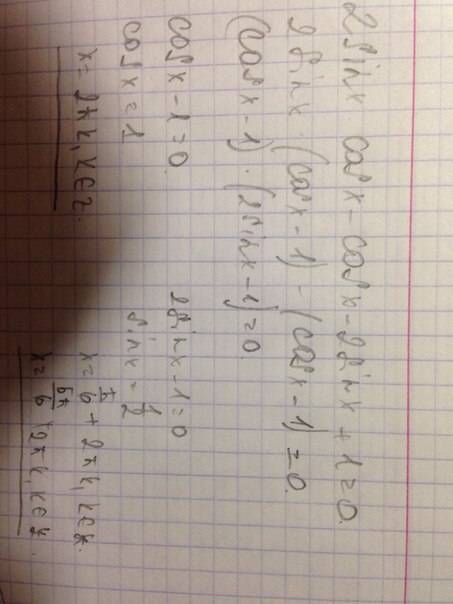 2 sin x cos x - cos x - 2 sin x + 1 = 0.
2 sin x · (cos x - 1) - (cos x - 1) = 0.
(cos x - 1) · (2 sin x - 1) = 0.
cos x - 1 = 0.
cos x = 1
x = 2πk, k ∈ z.
2 sin x - 1 = 0
sin x = 1/2
x = π/6 + 2πk, k ∈ z.
x = 5π/6 + 2πk, k ∈ z.